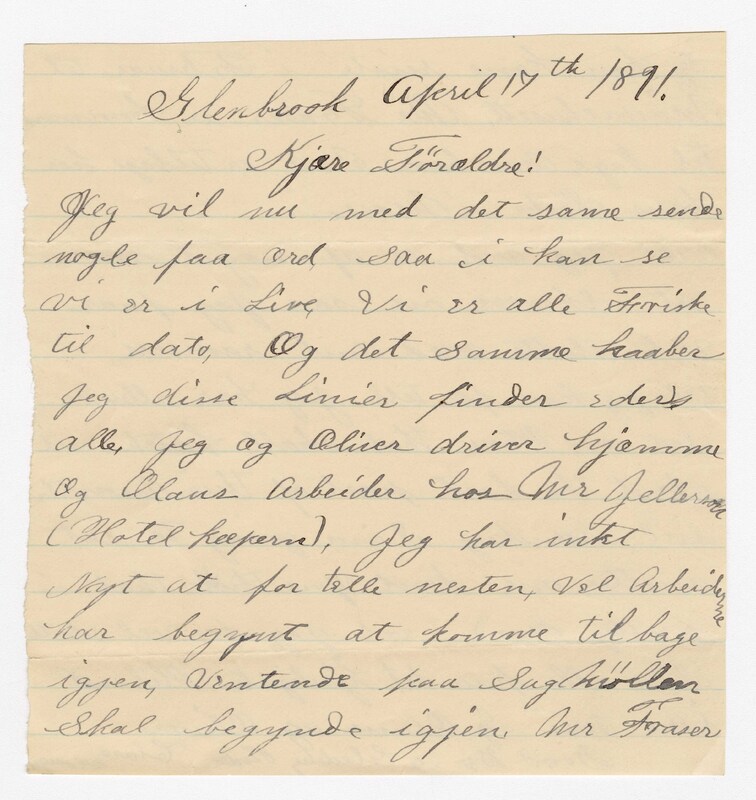 Glenbrook April 17th 1891.
Kjære Förældre!
Jeg vil nu med det same sende
nogle faa ord, saa i kan se
vi er i Live, Vi er alle Friske
til dato, Og det samme haaber
Jeg disse Linier finder eders
alle, Jeg og Oliver driver hjæmme
og Olaus Arbeider hos Mr Jellerson
(Hotel kæpern), Jeg har inkt
Nyt at for tælle nesten, Vel Arbeiderne
har begynt at komme tilbage
igjen, Ventende paa Sag höllen
Skal begynde igjen, Mr Fraser